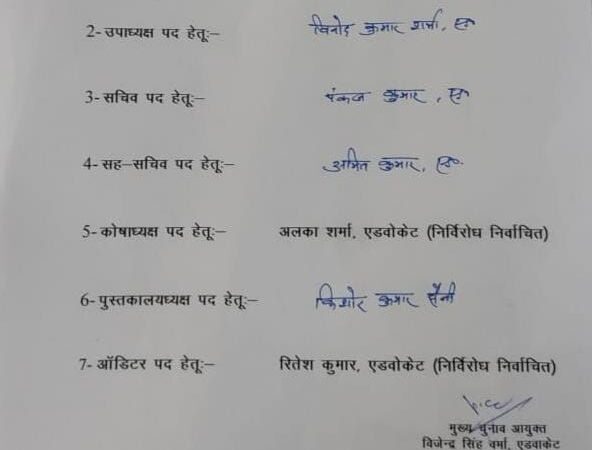 2- उपाध्यक्ष पद हेतूः– विनोद कुमार शर्मा, एड०
3- सचिव पद हेतूः– पंकज कुमार, एड०
4- सह–सचिव पद हेतूः– अमित कुमार, एड०
5- कोषाध्यक्ष पद हेतूः– अलका शर्मा, एडवोकेट (निर्विरोध निर्वाचित)
6- पुस्तकालयध्यक्ष पद हेतूः– किशोर कुमार सैनी
7- ऑडिटर पद हेतूः– रितेश कुमार, एडवोकेट (निर्विरोध निर्वाचित)
मुख्य चुनाव आयुक्त
विजेन्द्र सिंह वर्मा, एडवाकेट